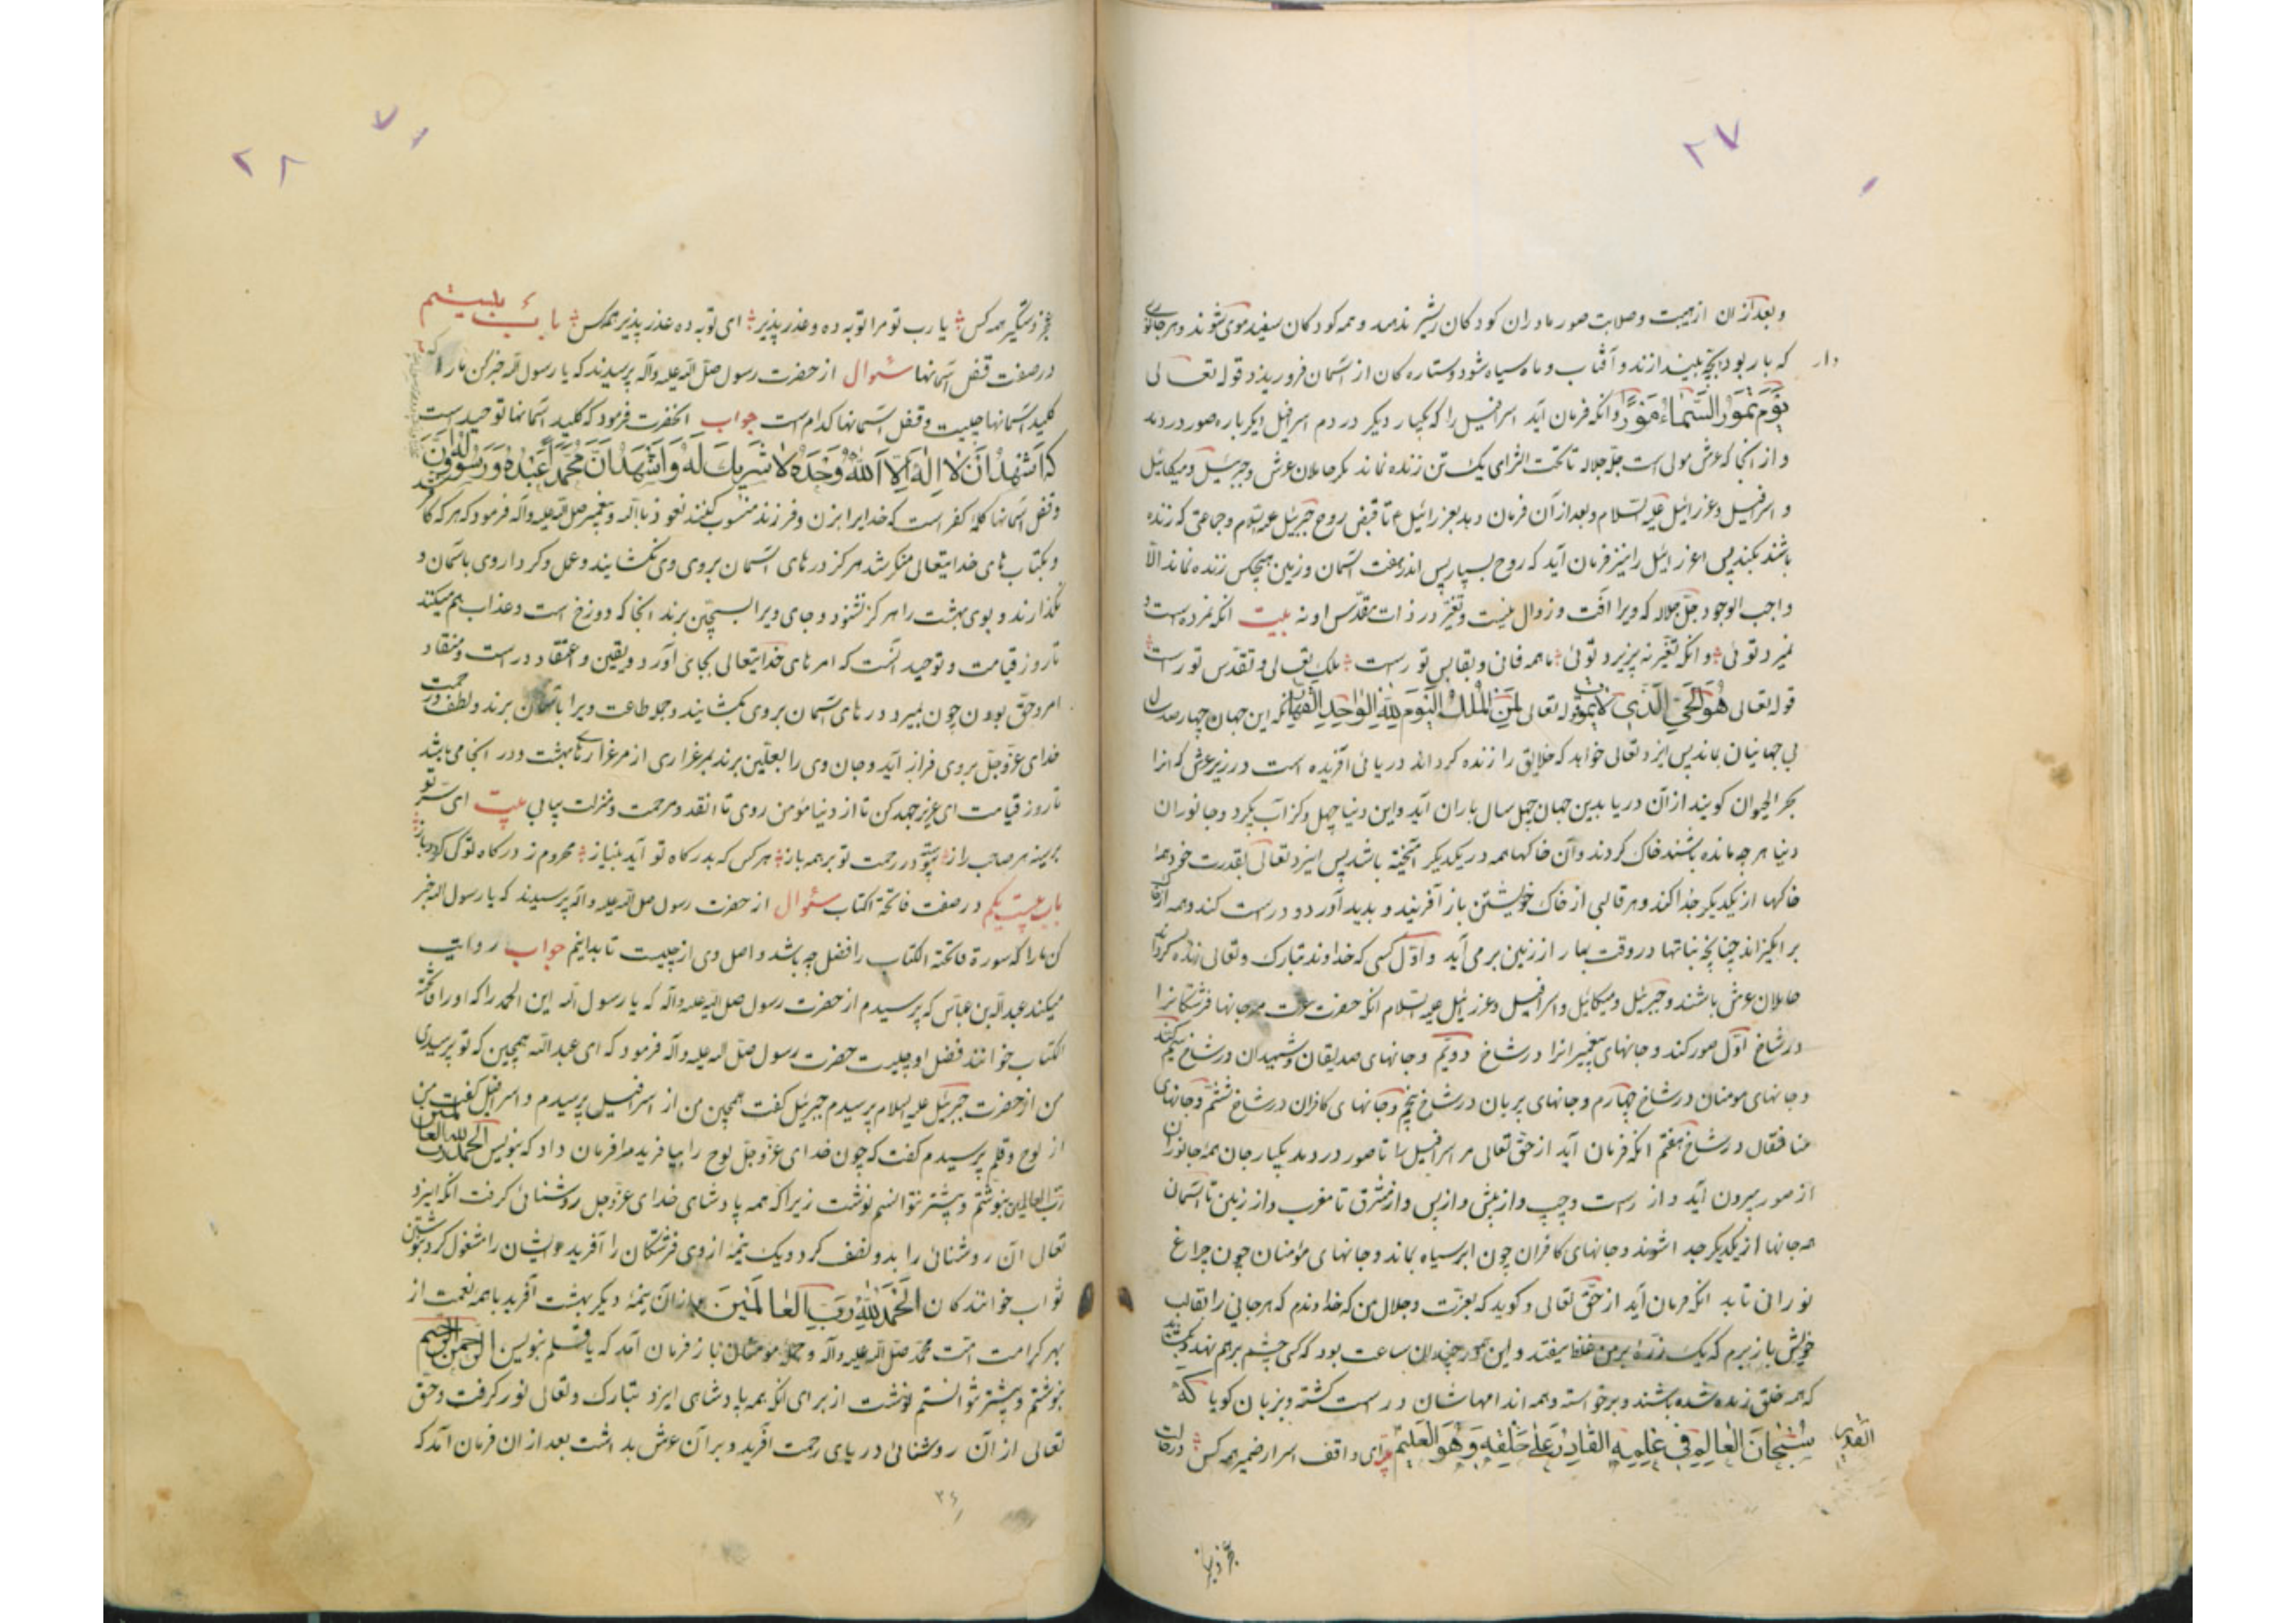 ۲۷
و بعد ازان از هیبت و صلابت صور مادران کودکان را شیر ندهند و همه کودکان سفید موی شوند و هر جانوری
دار که بار بود بچه بیندازند و آفتاب و ماه سیاه شود و ستاره کان از آسمان فرو ریزد قوله تعالی
یَوْمَ تَمُورُ السَّمَاءُ مَوْرًا و انکه فرمان آید اسرافیل را که یکبار دیکر در دم اسرافیل دیکر باره صور دردمد
و از انجا که عرش مولی است جلّ جلاله تا تحت الثرای یک تن زنده نماند مکر حاملان عرش و جبرئیل و میکائیل
و اسرافیل و عزرائیل علیه السلام و بعد از آن فرمان دهد بعزرائیل ع تا قبض روح جبرئیل علیه السلام و جماعتی که زنده
باشند بکند پس عزرائیل را نیز فرمان آید که روح بسپار پس اندر هفت آسمان و زمین هیچکس زنده نماند الّا
واجب الوجود جلّ جلاله که ویرا آفت و زوال نیست و تغیّر در ذات مقدّس او نه بیت انکه نمرده است و
نمیرد توئی و انکه تغیّر نپزیرد توئی ما همه فانی و بقا بس تو راست ملک تعالی و تقدّس تو راست
قوله تعالی هُوَ الْحَیُّ الَّذِی لَا یَمُوتُ قوله تعالی لِمَنِ الْمُلْکُ الْیَوْمَ لِلّٰهِ الْوَاحِدِ الْقَهَّارِ انکه این جهان چهار صد سال
بی جهانیان بماند پس ایزد تعالی خواهد که خلایق را زنده کرداند دریائی آفریده است در زیر عرش که انرا
بحر الحیوان کویند از آن دریا بدین جهان چهل سال باران آید و این دنیا چهل کز آب بکیرد و جانوران
دنیا هر چه مانده باشند خاک کردند و آن خاکها همه در یکدیکر آمیخته باشد پس ایزد تعالی بقدرت خود همه
خاکها از یکدیکر جدا کند و هر قالبی از خاک خویشتن باز آفریند و بدید آورد و درست کند و همه از خاک
بر انکیزاند چنانچه نباتها در وقت بهار از زمین بر می آید و اوّل کسی که خداوند تبارک و تعالی زنده کرداند
حاملان عرش باشند و جبرئیل و میکائیل و اسرافیل و عزرائیل علیه السلام انکه حضرت عزت جانها فرشتکانرا
در شاخ اوّل صور کند و جانهای پیغمبرانرا در شاخ دویّم و جانهای صدیقان و شهیدان در شاخ سیّم کند
و جانهای مومنان در شاخ چهارم و جانهای پریان در شاخ پنجم و جانهای کافران در شاخ ششم و جانهای
منافقان در شاخ هفتم انکه فرمان آید از حق تعالی مر اسرافیل را تا صور دردمد یکبار جان همه جانوران
از صور بیرون آید و از راست و چپ و از پیش و از پس و از مشرق تا مغرب و از زمین تا آسمان
همه جانها از یکدیکر جدا شوند و جانهای کافران چون ابر سیاه بماند و جانهای مؤمنان چون چراغ
نورانی تابد انکه فرمان آید از حقّ تعالی و کوید که بعزّت و جلال من که خداوندم که هر جانی را بقالب
خویش باز برم که یک ذرّه بر من غلط نیفتد و این امور چندان ساعت بود که کسی چشم بر هم نهد و بکشاید
که همه خلق زنده شده باشند و برخواسته و همه اندامهاشان درست کشته و بزبان کویا که
سُبْحَانَ الْعَالِمِ فِی عِلْمِهِ الْقَادِرِ عَلٰی خَلْقِهِ وَهُوَ الْعَلِیمُ القدیر ای واقف اسرار ضمیر همه کس در حالت
عجز
۲۸
عجز دستگیر همه کس یا رب تو مرا توبه ده و عذر پذیر ای توبه ده و عذر پذیر همه کس باب بیستم
در صفت قفل آسمانها سئوال از حضرت رسول صلّی الله علیه وآله پرسیدند که یا رسول الله خبر کن ما را که
کلید آسمانها چیست و قفل آسمانها کدام است جواب انحضرت فرمود که کلید آسمانها توحید است
که اَشْهَدُ اَنْ لَا اِلٰهَ اِلَّا اللّٰهُ وَحْدَهُ لَا شَرِیکَ لَهُ وَ اَشْهَدُ اَنَّ مُحَمَّدًا عَبْدُهُ وَ رَسُولُهُ
و قفل آسمانها کلمه کفر است که خدایرا بزن و فرزند منسوب کنند نعوذ بالله و پیغمبر صلی الله علیه وآله فرمود که هر که کافر
و بکتاب های خدایتعالی منکر شد هرکز درهای آسمان بروی وی نکشایند و عمل و کردار وی باسمان و
نکذارند و بوی بهشت را هرکز نشنود و جای ویرا بسجّین برند انجا که دوزخ است و عذاب هم میکند
تا روز قیامت و توحید آنست که امرهای خدایتعالی بجای آورد و یقین و اعتقاد درست و منقاد
امر حق بودن چون بمیرد درهای آسمان بروی بکشایند و جلو طاعت ویرا باسمان برند و لطف و رحمت
خدای عزّوجلّ بروی فراز آید و جان وی را بعلّیین برند بمرغزاری از مرغزارهای بهشت و در انجا می باشد
تا روز قیامت ای عزیز جهد کن تا از دنیا مؤمن روی تا انقدر مرحمت و منزلت بیابی بیت ای سرّ تو
در سینه هر صاحب راز پیوسته در رحمت تو بر همه باز هر کس که بدرکاه تو آید بنیاز محروم ز درکاه تو کی کردد باز
باب بیست یکم در صفت فاتحة الکتاب سئوال از حضرت رسول صلی الله علیه وآله پرسیدند که یا رسول الله خبر
کن ما را که سورة فاتحة الکتاب را فضل چه باشد و اصل وی از چیست تا بدانیم جواب روایت
میکند عبدالله بن عبّاس که پرسیدم از حضرت رسول صلی الله علیه وآله که یا رسول الله این الحمد را که او را فاتحة
الکتاب خوانند فضل او چیست حضرت رسول صلّی الله علیه وآله فرمود که ای عبدالله همچین که تو پرسیدی
من از حضرت جبرئیل علیه السلام پرسیدم جبرئیل کفت همچین من از اسرافیل پرسیدم و اسرافیل کفت من
از لوح و قلم پرسیدم کفت که چون خدای عزّوجلّ لوح را بیافرید مرا فرمان داد که بنویس الحمد لله رب العالمین
رَبِّ الْعَالَمِین بنوشتم و بیشتر نتوانستم نوشت زیرا که همه پادشاهی خدای عزّوجل روشنائی کرفت انکه ایزد
تعالی آن روشنائی را بدو نصف کرد و یک نیمهٔ از وی فرشتکان را آفرید و ایشان را مشغول کرد بنوشتن
ثواب خوانندکان اَلْحَمْدُ لِلّٰهِ رَبِّ الْعَالَمِینَ و از آن نیمهٔ دیکر بهشت آفرید با همه نعمت از
بهر کرامت امّت محمّد صلّی الله علیه وآله و جملهٔ مومنان باز فرمان آمد که یا قلم بنویس الرّحمٰن الرّحیم
بنوشتم و بیشتر نتوانستم نوشت از برای انکه همه پادشاهی ایزد تبارک و تعالی نور کرفت و حقّ
تعالی از آن روشنائی دریای رحمت آفرید و بر آن عرش بداشت بعد از ان فرمان آمد که